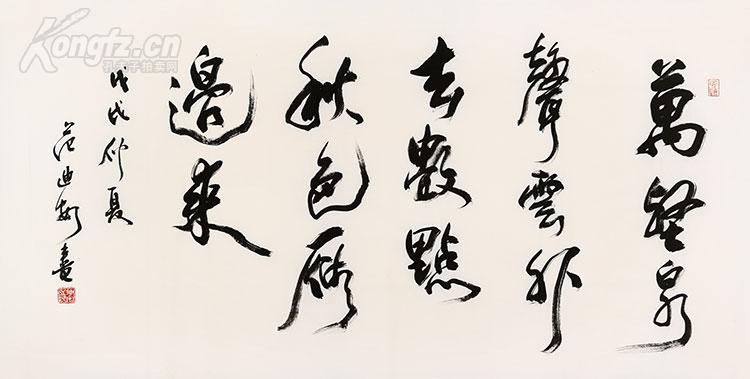 萬壑泉
聲雲外
去數點
秋色雁
邊來
戊戌仲夏
范迪彬書
Kongfz.cn
孔夫子拍卖网